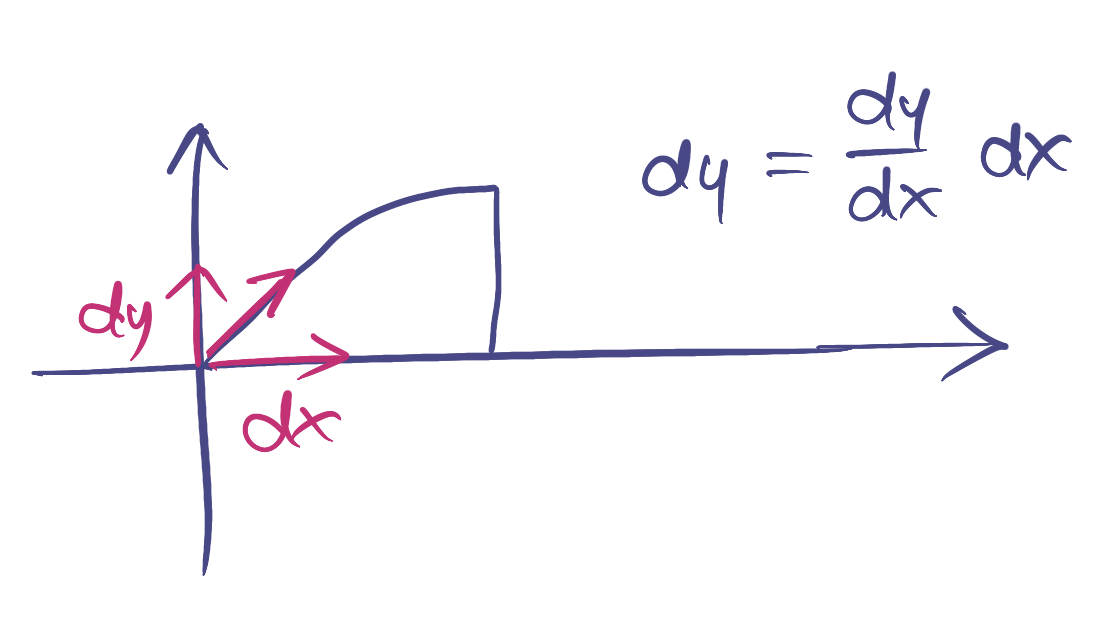 dy = dy/dx dx
dy
dx